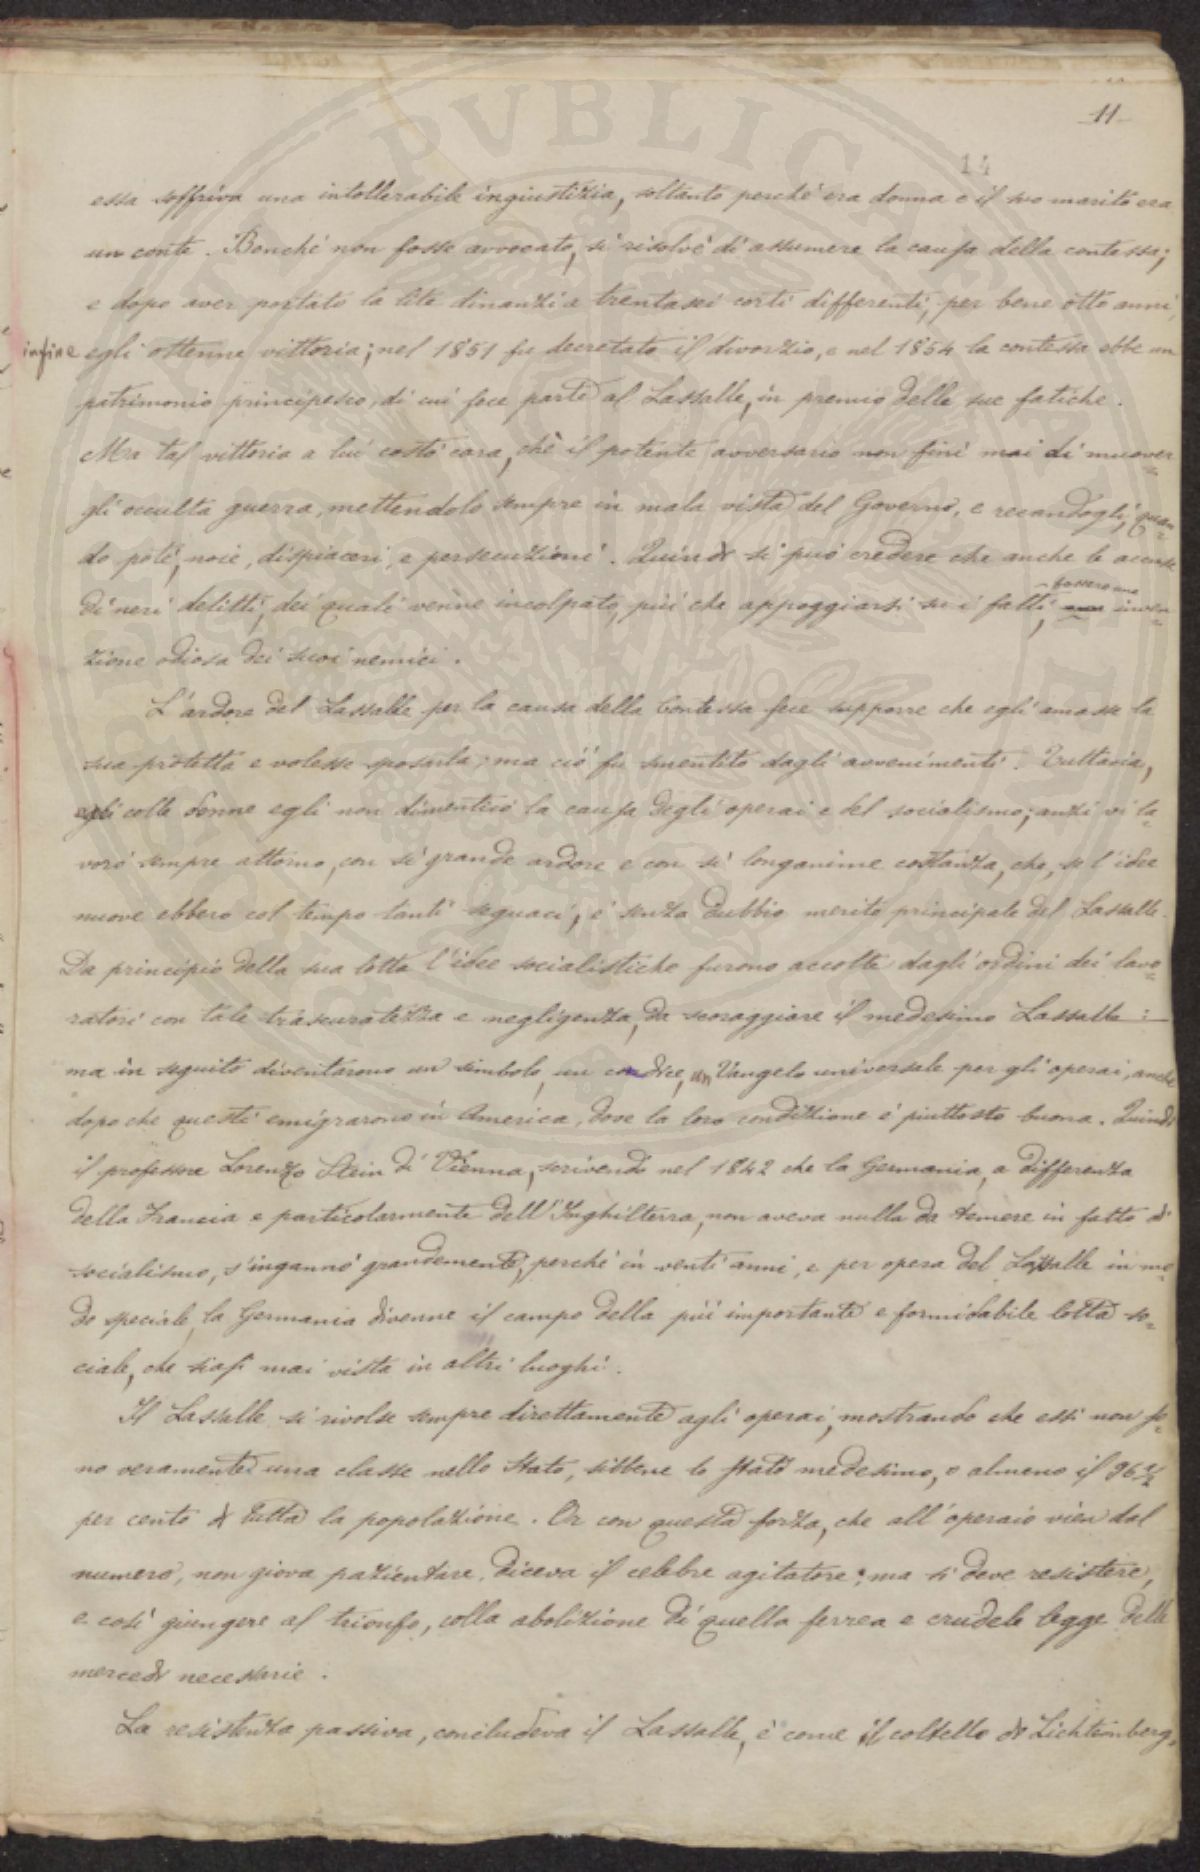 11
14
essa soffriva una intollerabile ingiustizia, soltanto perché era donna e il suo marito era
un conte. Benché non fosse avvocato, si risolvè di assumere la causa della contessa;
e dopo aver portato la lite dinanzi a trentasei corti differenti, per bene otto anni,
infine egli ottenne vittoria; nel 1851 fu decretato il divorzio, e nel 1854 la contessa ebbe un
patrimonio principesco, di cui fece parte al Lassalle, in premio delle sue fatiche.
Ma tal vittoria a lui costò cara, chè il potente avversario non finì mai di muover=
gli occulta guerra, mettendolo sempre in mala vista del Governo, e recandogli, quan=
do potè, noie, dispiaceri, e persecuzioni. Quindi si può credere che anche le accuse
di neri delitti, dei quali venne incolpato, più che appoggiarsi su i fatti, fossero una inven=
zione odiosa dei suoi nemici.
L'ardore del Lassalle per la causa della Contessa fece supporre che egli amasse la
sua protetta e volesse sposarla; ma ciò fu smentito dagli avvenimenti. Tuttavia,
colle donne egli non dimenticò la causa degli operai e del socialismo; anzi vi la=
vorò sempre attorno, con sì grande ardore e con sì longanime costanza, che, se l'idee
nuove ebbero col tempo tanti seguaci, è senza dubbio merito principale del Lassalle.
Da principio della sua lotta l'idee socialistiche furono accolte dagli ordini dei lavo=
ratori con tale trascuratezza e negligenza, da scoraggiare il medesimo Lassalle:
ma in seguito diventarono un simbolo, un codice, un Vangelo universale per gli operai, anche
dopo che questi emigrarono in America, dove la loro condizione è piuttosto buona. Quindi
il professore Lorenzo Stein di Vienna, scrivendo nel 1842 che la Germania, a differenza
della Francia e particolarmente dell'Inghilterra, non aveva nulla da temere in fatto di
socialismo, s'ingannò grandemente; perché in venti anni, e per opera del Lassalle in mo=
do speciale, la Germania divenne il campo della più importante e formidabile lotta so=
ciale, che siasi mai vista in altri luoghi.
Il Lassalle si rivolse sempre direttamente agli operai, mostrando che essi non so=
no veramente una classe nello Stato, sibbene lo Stato medesimo, o almeno il 96 1/2
per cento di tutta la popolazione. Or con questa forza, che all'operaio vien dal
numero, non giova pazientare, diceva il celebre agitatore; ma si deve resistere,
e così giungere al trionfo, colla abolizione di quella ferrea e crudele legge delle
mercedi necessarie.
La resistenza passiva, concludeva il Lassalle, è come il coltello di Lichtemberg,